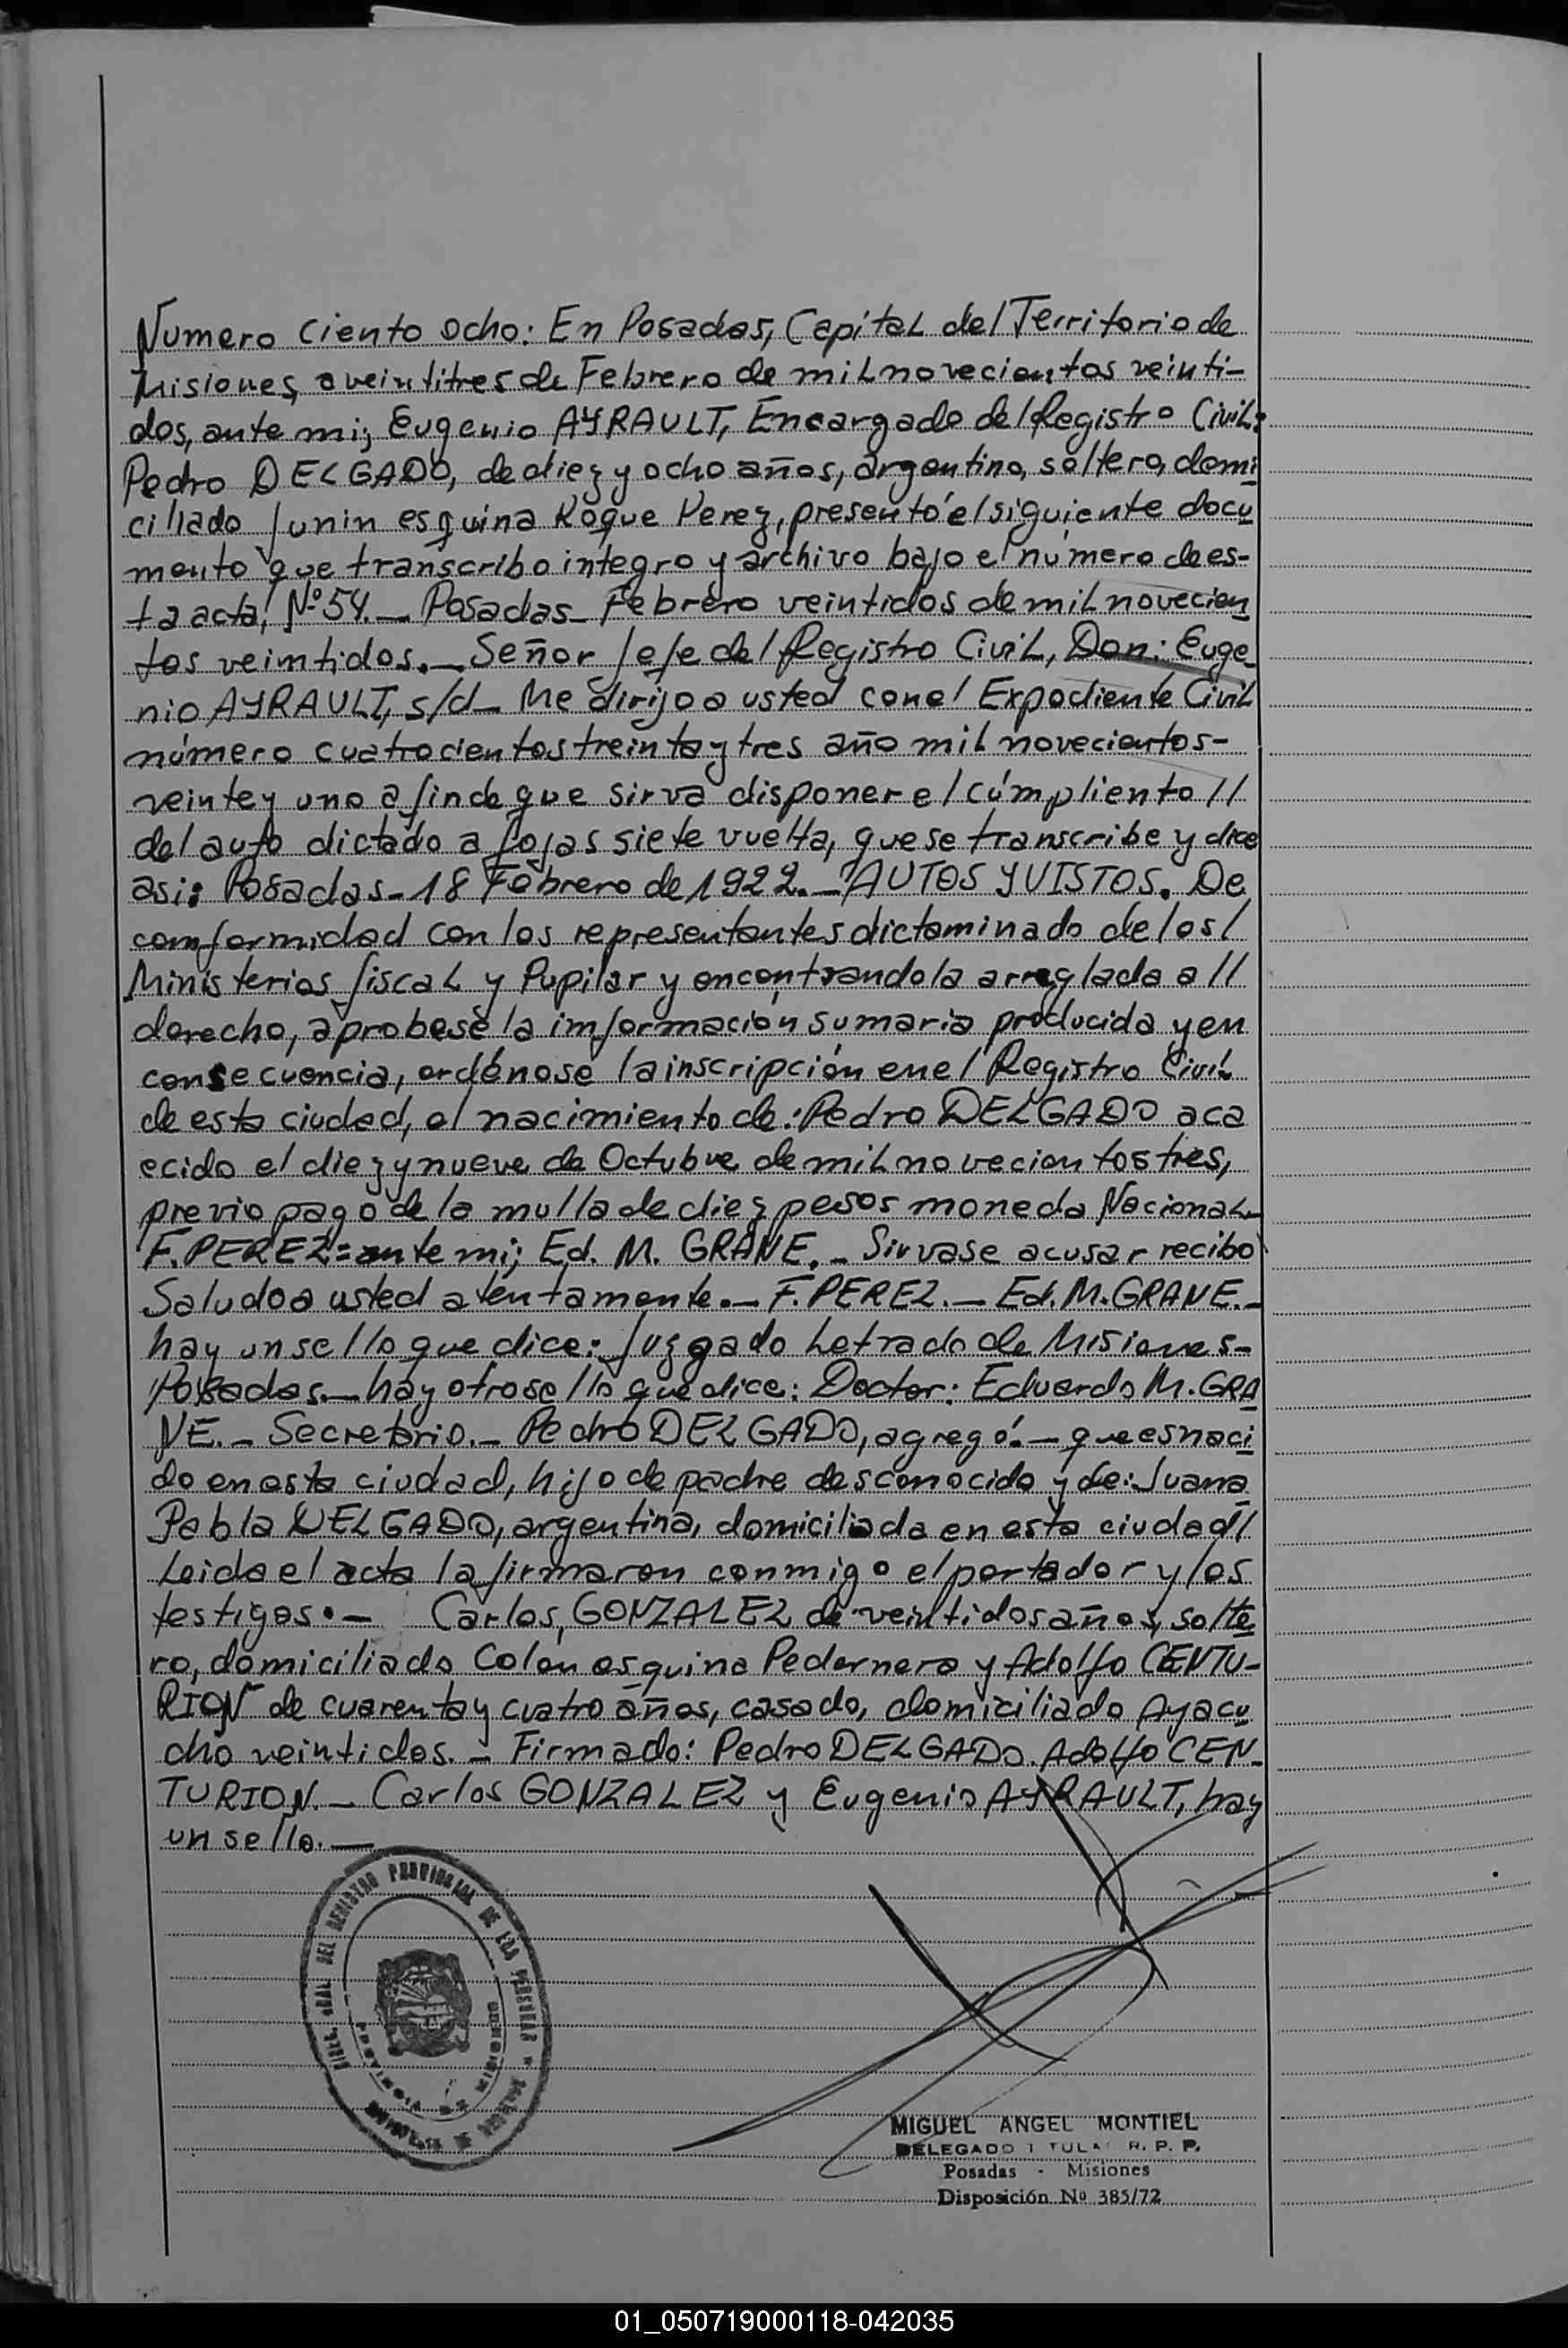 Numero Ciento ocho: En Posadas, Capital del Territorio de
Misiones, a veintitres de Febrero de mil novecientos veinti-
dos, ante mi; Eugenio AYRAULT, Encargado del Registro Civil:
Pedro DELGADO, de diez y ocho años, argentino, soltero, domi
ciliado Junin esquina Roque Perez, presentó el siguiente docu
mento que transcribo integro y archivo bajo el número de es-
ta acta, Nº 54.— Posadas- Febrero veintidos de mil novecien
tos veimtidos.— Señor Jefe del Registro Civil, Don: Euge
nio AYRAULT, s/d- Me dirijo a usted con el Expediente Civil
número cuatrocientos treinta y tres año mil novecientos-
veinte y uno a fin de que sirva disponer el cúmpliento //
del auto dictado a fojas siete vuelta, que se transcribe y dice
asi: Posadas-18 Febrero de 1922.— AUTOS Y VISTOS. De
comformidad con los representantes dictaminado de los/
Ministerios fiscal y Pupilar y encontrandola arreglada a //
derecho, aprobese la imformación sumaria producida y en
consecuencia, ordénose la inscripción en el Registro Civil
de esta ciudad, el nacimiento de: Pedro DELGADO aca
ecido el diez y nueve de Octubre de mil novecientos tres,
previo pago de la multa de diez pesos moneda Nacional-
F. PEREZ= ante mi; Ed. M. GRANE.- Sirvase acusar recibo
Saludo a usted atentamente.— F. PEREZ.— Ed. M. GRANE.-
hay un sello que dice: Juzgado Letrado de Misiones-
Posadas.— hay otro sello que dice: Doctor: Eduardo M. GRA
NE.- Secretario.- Pedro DELGADO, agregó.— que es naci
do en esta ciudad, hijo de padre desconocido y de: Juana
Pabla DELGADO, argentina, domiciliada en esta ciudad//
Leida el acta la firmaron conmigo el portador y los
testigos.— Carlos, GONZALEZ de veintidos años, solte
ro, domiciliado Colon esquina Pedernera y Adolfo CENTU-
RION de cuarenta y cuatro años, casado, domiciliado Ayacu
cho veintidos.- Firmado: Pedro DELGADO. Adolfo CEN-
TURION.- Carlos GONZALEZ y Eugenio AYRAULT, hay
un sello.—
DEL REGISTRO PROVINCIAL DE LAS PERSONAS
MIGUEL ANGEL MONTIEL
DELEGADO R. P. P.
Posadas - Misiones
Disposición Nº 385/72
01_050719000118-042035